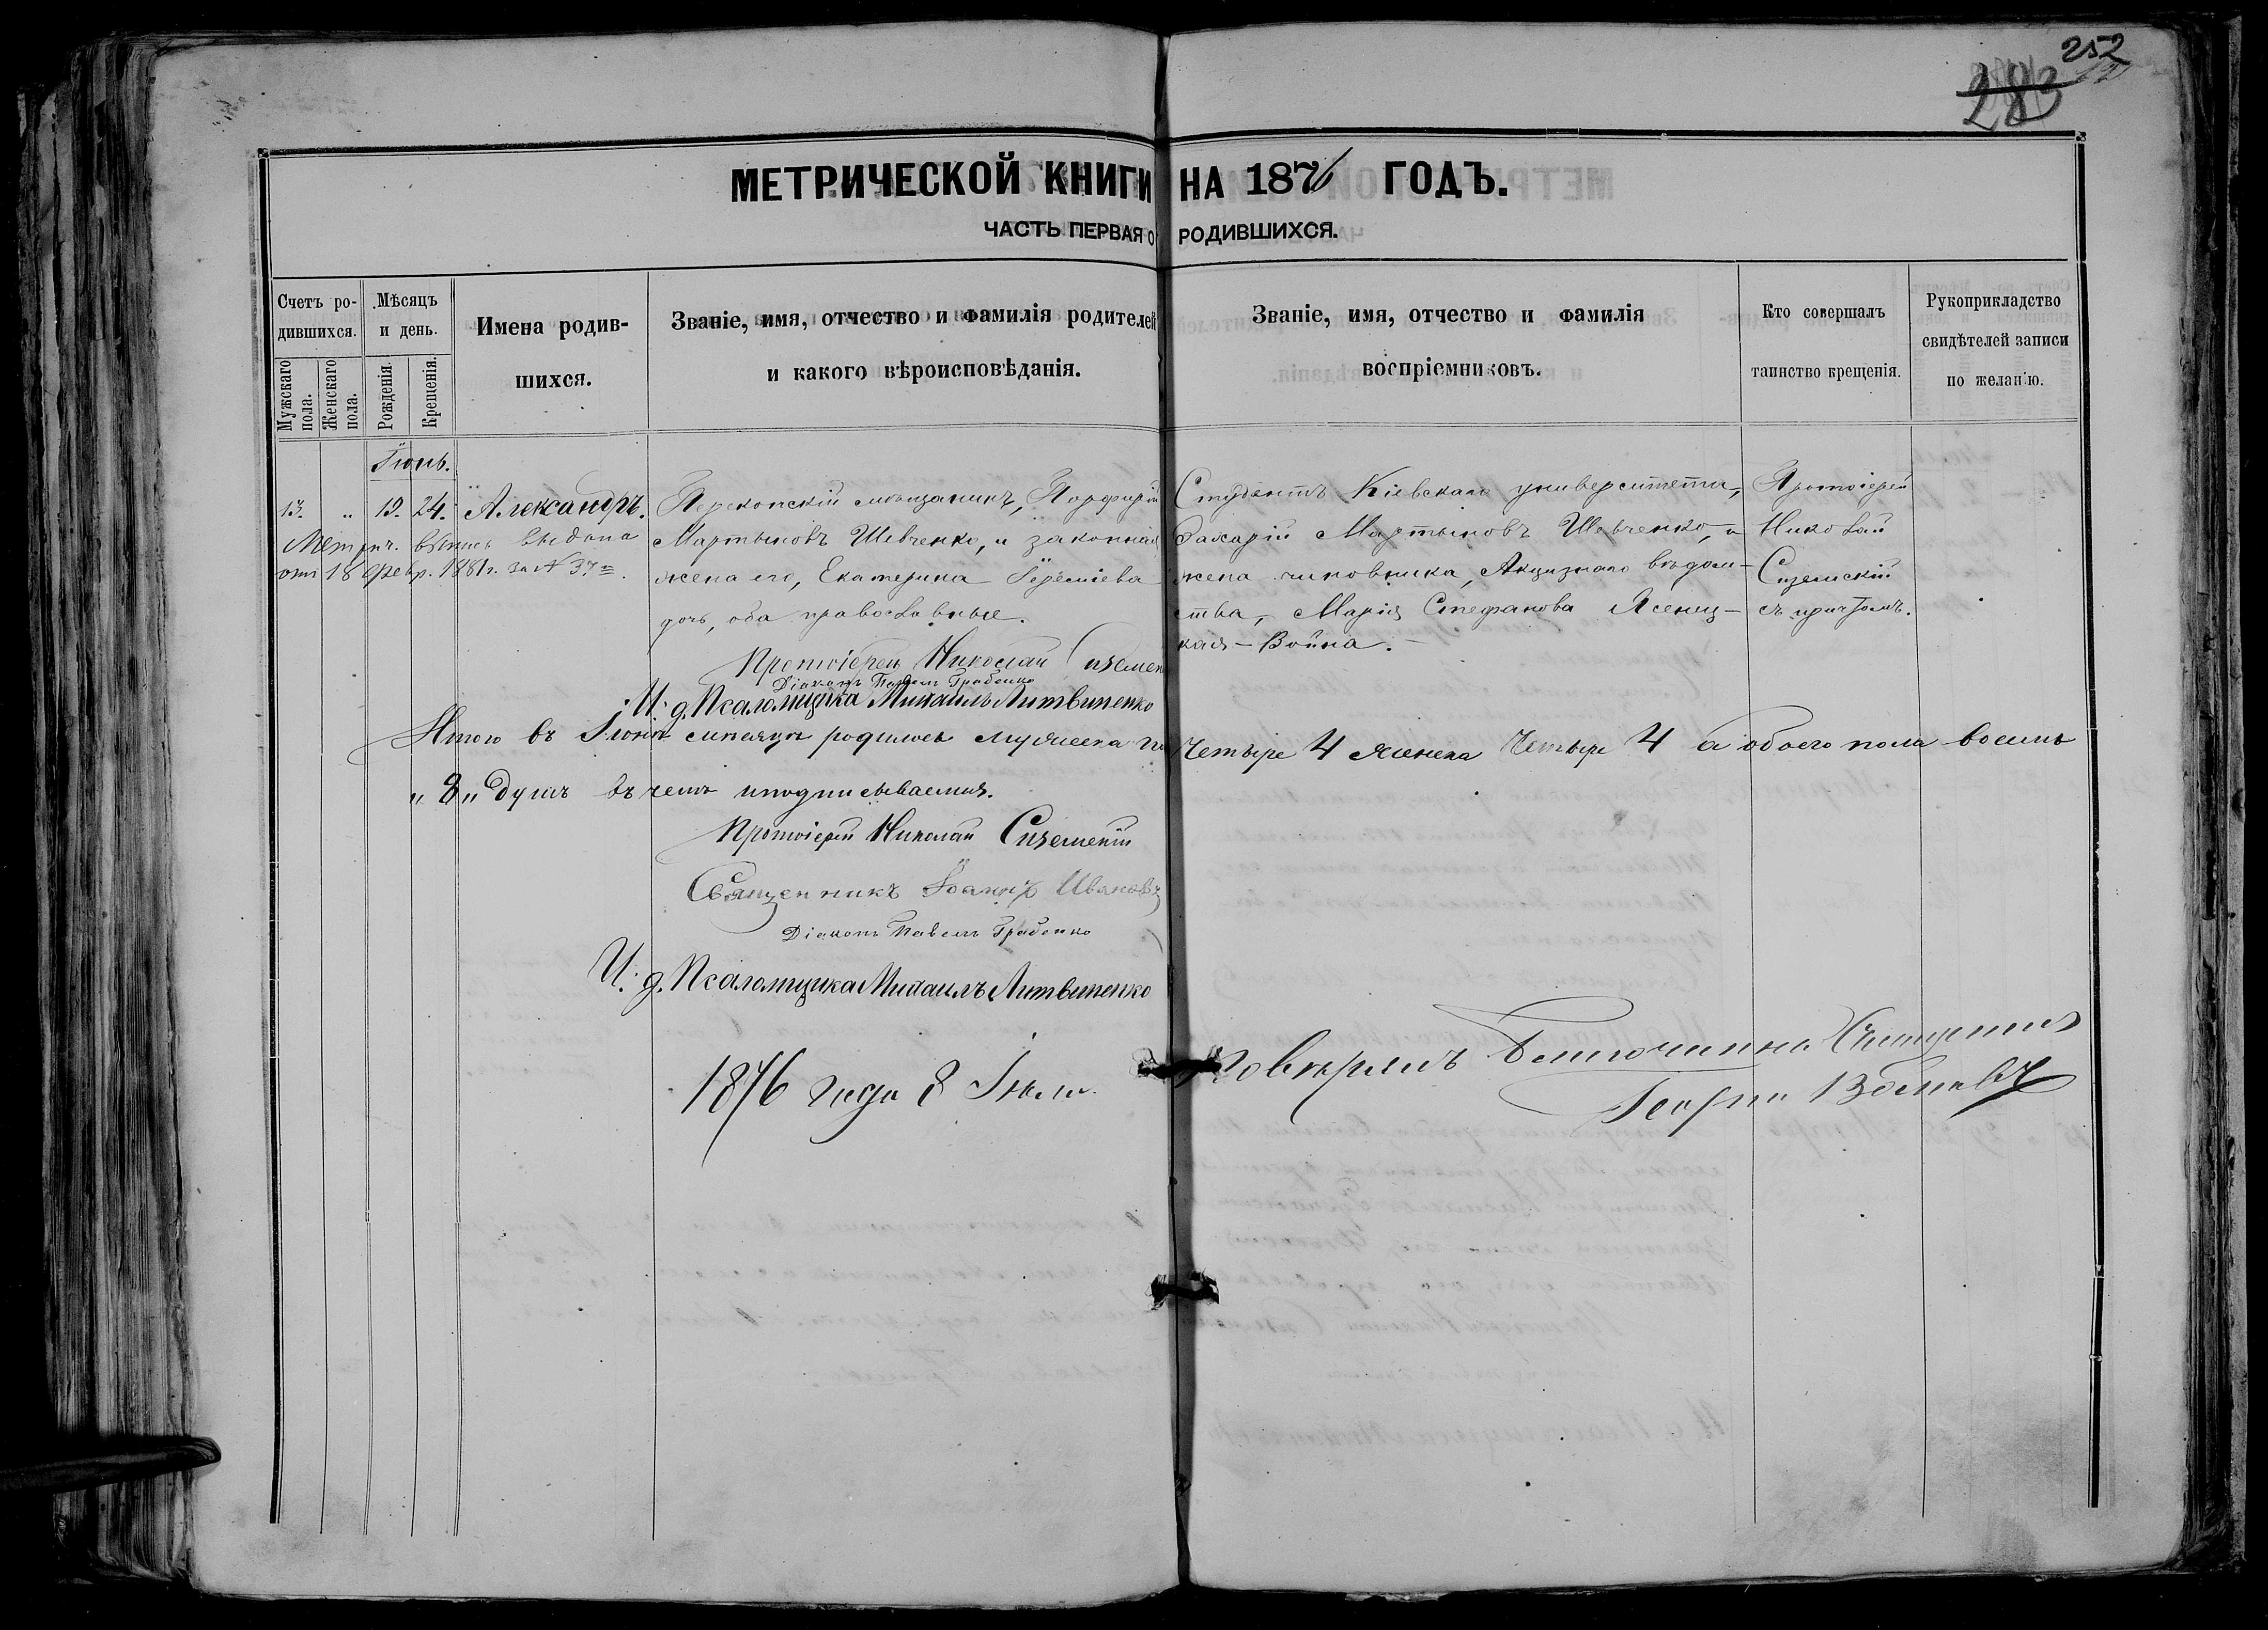 252
283
МЕТРИЧЕСКОЙ КНИГИ НА 1876 ГОДЪ.
ЧАСТЬ ПЕРВАЯ О РОДИВШИХСЯ.
Счетъ родившихся.
Мужскаго пола.
Женскаго пола.
Мѣсяцъ и день.
Рожденія.
Крещенія.
Имена родившихся.
Званіе, имя, отчество и фамилія родителей
и какого вѣроисповѣданія.
Званіе, имя, отчество и фамилія
воспріемниковъ.
Кто совершалъ
таинство крещенія.
Рукоприкладство
свидѣтелей записи
по желанію.
Іюнь.
13. „ 19. 24. Александръ.
Метрич. выпись выдана
отъ 18 Февр. 1881 г. за № 37м.
Перекопскій мѣщанинъ, Порфирій
Мартыновъ Шевченко, и законная
жена его, Екатерина Іереміева
дочь, оба православные.
Студентъ Кіевскаго университета,
Захарій Мартыновъ Шевченко, и
жена чиновника, Акцизнаго вѣдом-
ства, – Марія Стефанова Ясенец-
кая – Война. –
Протоіерей
Николай
Сиземскій
съ причтомъ.
Протоіерей Николай
Діаконъ Павелъ Грабенко
И. д. Псаломщика Михаилъ Литвиненко
Итого въ Іюнѣ мѣсяцѣ родилось мужеска по четыре 4 женска четыре 4 а обоего пола восемь
„ 8 „ душъ въ чемъ и подписываемся.
Протоіерей Николай Сиземскій
Священникъ Іоаннъ Ивановъ
Діаконъ Павелъ Грабенко
И. д. Псаломщика Михаилъ Литвиненко
1876 года 8 Іюля.
Повѣрялъ Благочинный Священникъ
Георгій